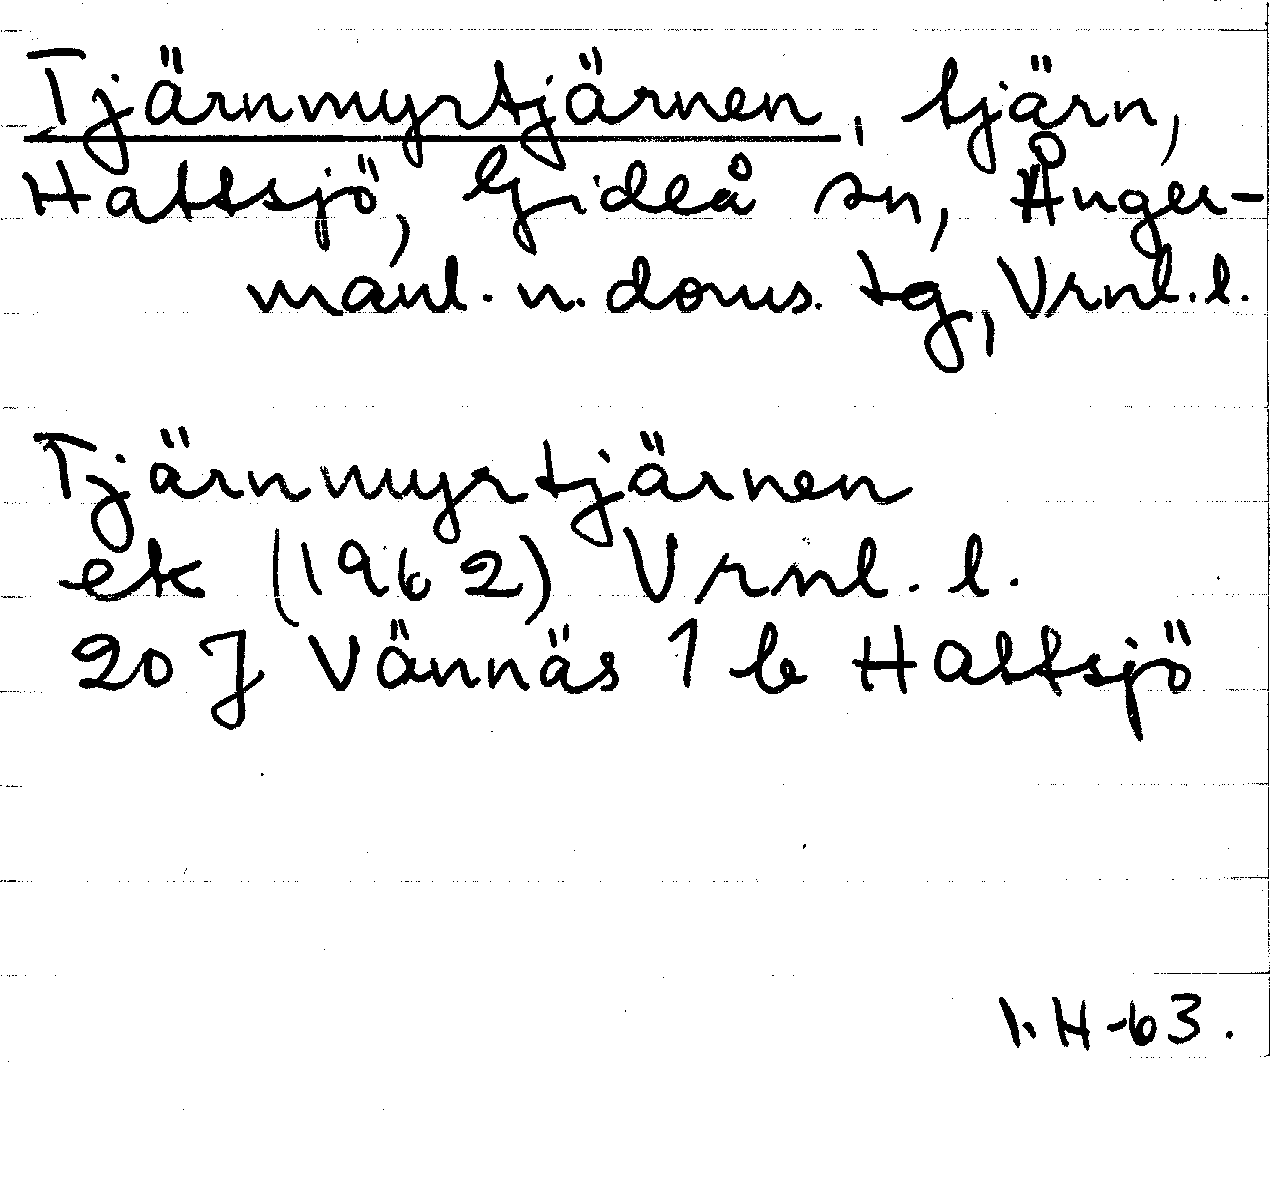 Tjärnmyrtjärnen, tjärn,
Hattsjö, Gideå sn, Ånger-
manl. n. doms. tg, Vrnl. l.
Tjärnmyrtjärnen
ek (1962) Vrnl. l.
20 J Vännäs 1 b Hattsjö
I.H-63.